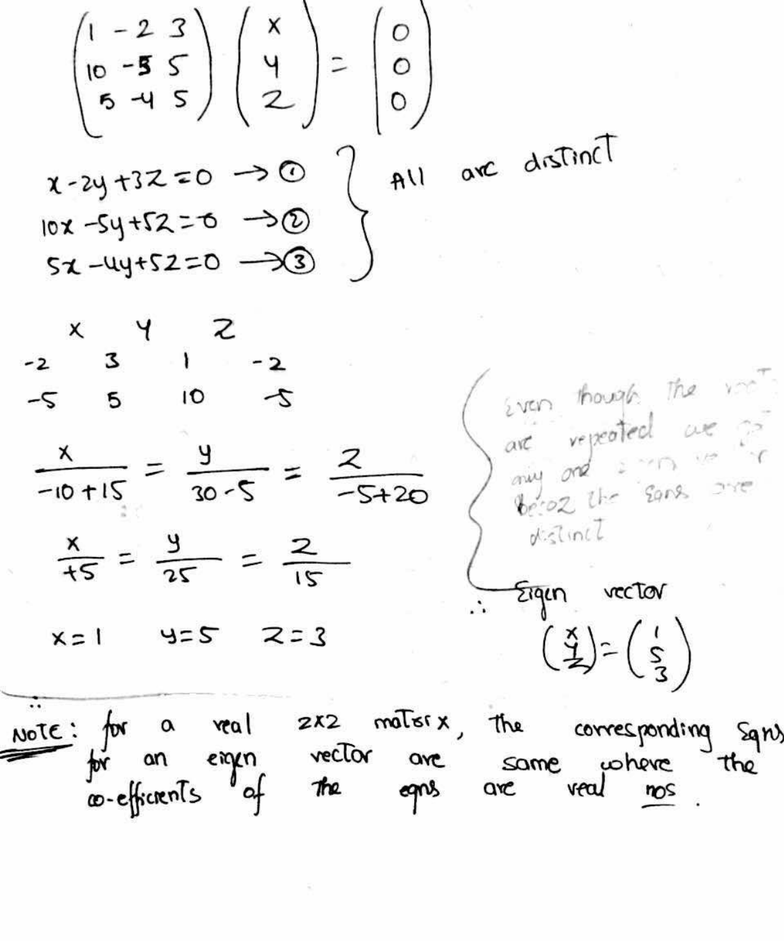 (1 -2 3) (x) = (0)
(10 -5 5) (y) (0)
(5 -4 5) (z) (0)
x-2y+3z=0 → ①
10x-5y+5z=0 → ②
5x-4y+5z=0 → ③
All are distinct
x y z
-2 3 1 -2
-5 5 10 -5
x/(-10+15) = y/(30-5) = z/(-5+20)
x/+5 = y/25 = z/15
x=1 y=5 z=3
Even though the
are repeated we
any one
becoz the Eqns are
distinct
∴ Eigen vector
(x y z) = (1 5 3)
NOTE: for a real 2x2 matrix, the corresponding Eqns
for an eigen vector are same where the
co-efficients of the eqns are real nos.